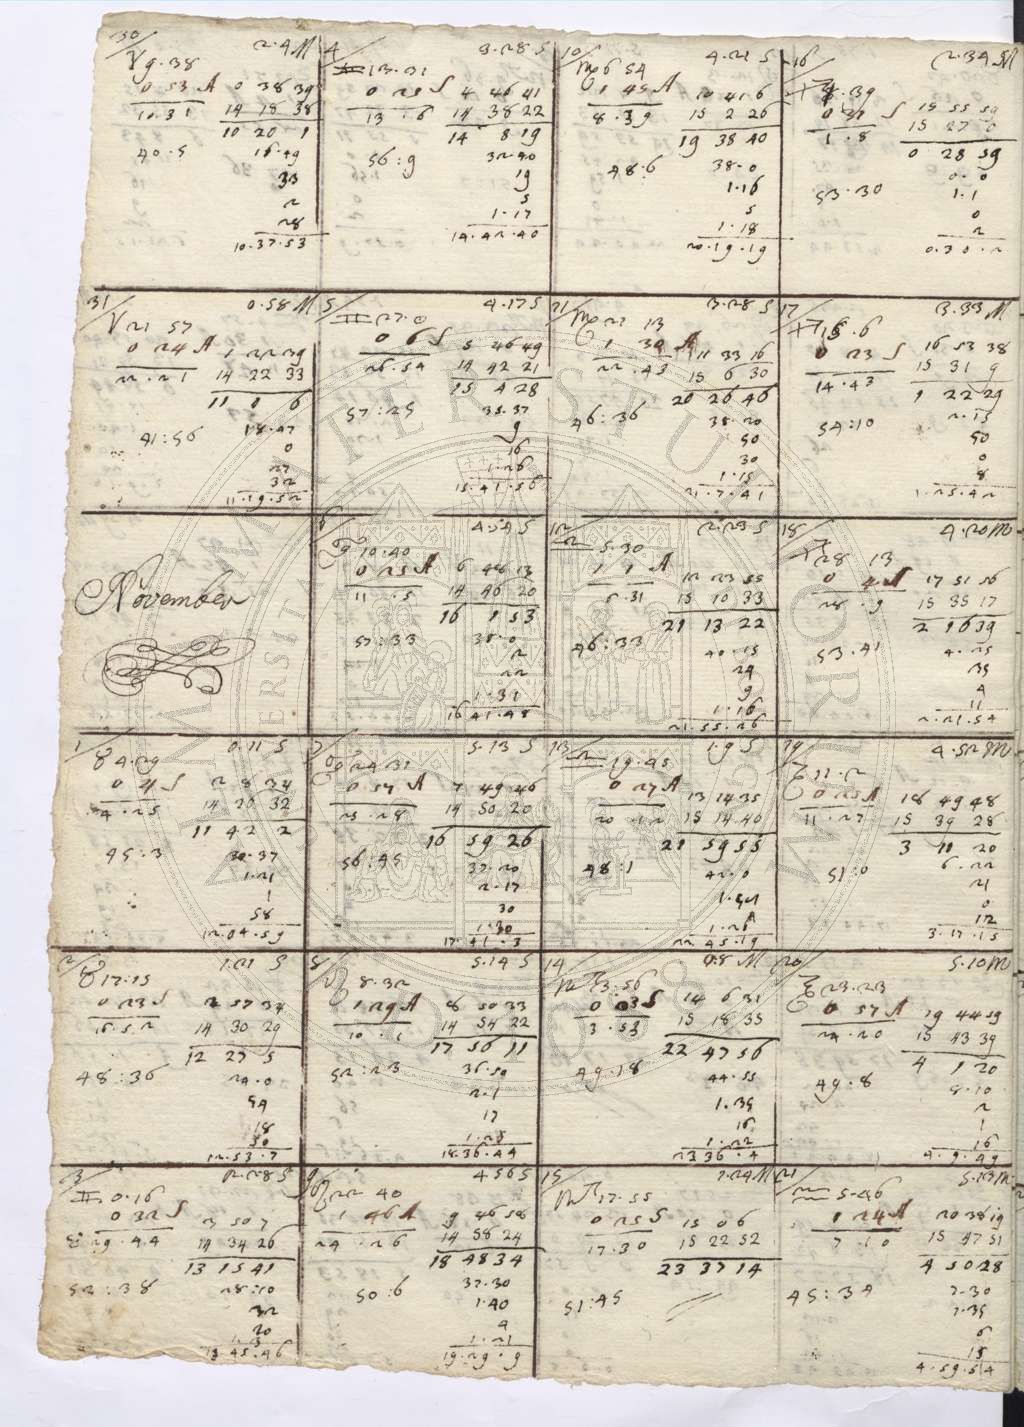 30 2.4 M
♈ 9.38
0 53 A 0 38 39
10.31 14 18 38
10 20 1
40.5 16.49
33
2
28
10.37.53
4 3.28 S
13.31
0 25 S 4 46 41
13.6 14 38 22
14 8 19
56:9 32.40
19
5
1.17
14.42.40
10 4.21 S
♍ 6 54
1 45 A 10 41 6
8.39 15 2 26
19 38 40
48.6 38.0
1.16
5
1.18
20.19.19
16 2.34 M
S 15 55 59
1.8 15 27 0
0 28 59
53.30 0.0
1.1
0
2
0.30.2
31 0.58 M
♈ 21 57
0 24 A 1 22 39
22.21 14 22 33
11 0 6
41:56 18.47
0
27
32
11.19.52
5 4.17 S
♊ 27.0
0 6 S 5 46 49
26.54 14 42 21
15 4 28
57:25 35.37
9
16
1.26
15.41.56
11 3.28 S
♍ 21 13
1 30 A 11 33 16
22.43 15 6 30
20 26 46
46:36 38.20
50
30
1.15
21.7.41
17 3.33 M
0 23 S 16 53 38
14.43 15 31 9
1 22 29
54:10 2.15
50
0
8
1.25.42
November
6 4.54 S
♋ 10.40
0 25 A 6 48 13
11.5 14 46 20
16 1 53
57:33 38.0
2
22
1.31
16 41.48
12 2.23 S
♎ 5.30
1 1 A 12 23 55
6.31 15 10 33
21 13 22
46:33 40.15
24
9
1.16
21.55.26
18 4.20 M
♐ 28 13
0 4 A 17 51 56
28.9 15 35 17
2 16 39
53.41 4.25
35
4
11
2.21.54
1 0.11 S
♉ 4.29
0 4 S 2 8 34
4.25 14 20 32
11 42 2
45:3 20.37
1.21
1
58
12.04.59
7 5.13 S
♋ 24 31
0 57 A 7 49 46
25.28 14 50 20
16 59 26
56:45 37.20
2.17
30
1.30
17.41.3
13 1.9 S
♎ 19.45
0 27 A 13 14 35
20.12 15 14 40
21 59 55
48:1 42.0
1.54
A
1.26
22 45.19
19 4.52 M
♑ 11.2
0 25 A 18 49 48
11.27 15 39 28
3 10 20
51:0 6.22
21
0
12
3.17.15
2 1.21 S
♉ 17.15
0 23 S 2 57 34
16.52 14 30 29
12 27 5
48:36 24.0
54
18
50
12.53.7
8 5.14 S
♌ 8.32
1 29 A 8 50 33
10.1 14 54 22
17 56 11
52:23 36.50
2.1
17
1.25
18.36.44
14 0.8 M
♏ 3:56
0 03 S 14 6 31
3.53 15 18 35
22 47 56
49.18 44.55
1.35
16
1.22
23 36.4
20 5.10 M
♑ 23.23
0 57 A 19 44 59
24.20 15 43 39
4 1 20
49.8 8.10
2
1
16
4.9.49
3 2.28 S
♊ 0.16
0 32 S 3 50 7
29.44 14 34 26
13 15 41
52:38 28:10
32
20
1.3
13 45.46
9 4 56 S
♌ 22 40
1 46 A 9 46 58
24.26 14 58 24
18 48 34
50:6 37.30
1.40
4
1.21
19.29.9
15 1.24 M
♏ 17.55
0 25 S 15 0 6
17.30 15 22 52
23 37 14
51:45
21 5.13 M
♒ 5.46
1 24 A 20 38 19
7.10 15 47 51
4 50 28
45:34 7.30
1.35
6
15
4.59.54